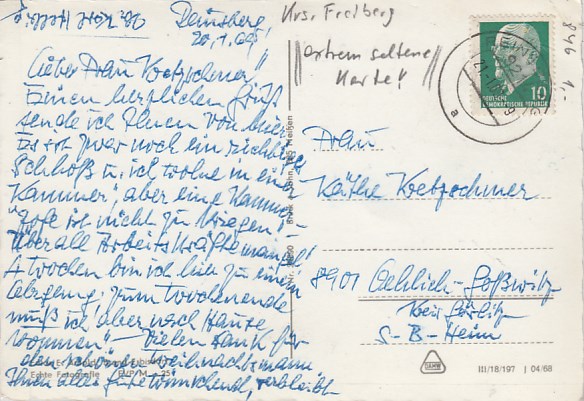 Ihr. Horst
Reinsberg,
20.1.69!
Krs. Freiberg
extrem seltene
Karte!
846
1,-
Liebe Frau Kretzschmer!
Einen herzlichen Gruß
sende ich Ihnen von hier.
Es ist zwar noch ein richtiges
Schloß u. ich wohne in einer
"Kammer", aber eine Kammer-
zofe ist nicht zu kriegen, -
überall Arbeitskräftemangel!
4 Wochen bin ich hier zu einem
Lehrgang, zum Wochenende
muß ich aber nach Hause
kommen" – Vielen Dank für
den schönen Weihnachtsmann.
Ihnen alles Gute wünschend, verbleibt
Frau
Käthe Kretzschmer
8901
bei Görlitz
S-B-Heim
10
DEUTSCHE
DEMOKRATISCHE REPUBLIK
a
Echte Fotografie
III/18/197 | 04/68